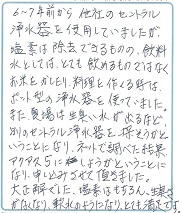 6~7年前から他社のセントラル
浄水器を使用していましたが、
塩素は除去できるものの、飲料
水としては、とても飲めるものではなく
お米をかしたり、料理を作る時は、
ポット型の浄水器を使っていました。
また、農場は生臭い水が出るなど、
別のセントラル浄水器を探そうかと
いうことになり、ネットで調べた結果
アクアス5にしようかということに
なり、申し込みさせて頂きました。
大正解でした、塩素はもちろん、生臭さ
がなくなり、軟水のようになり、とても満足です。